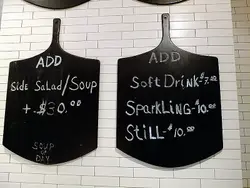 ADD
Side Salad/Soup
+ $30.00
SOUP
OF
DAY
ADD
Soft Drink-$7.00
Sparkling-$10.00
Still-$10.00